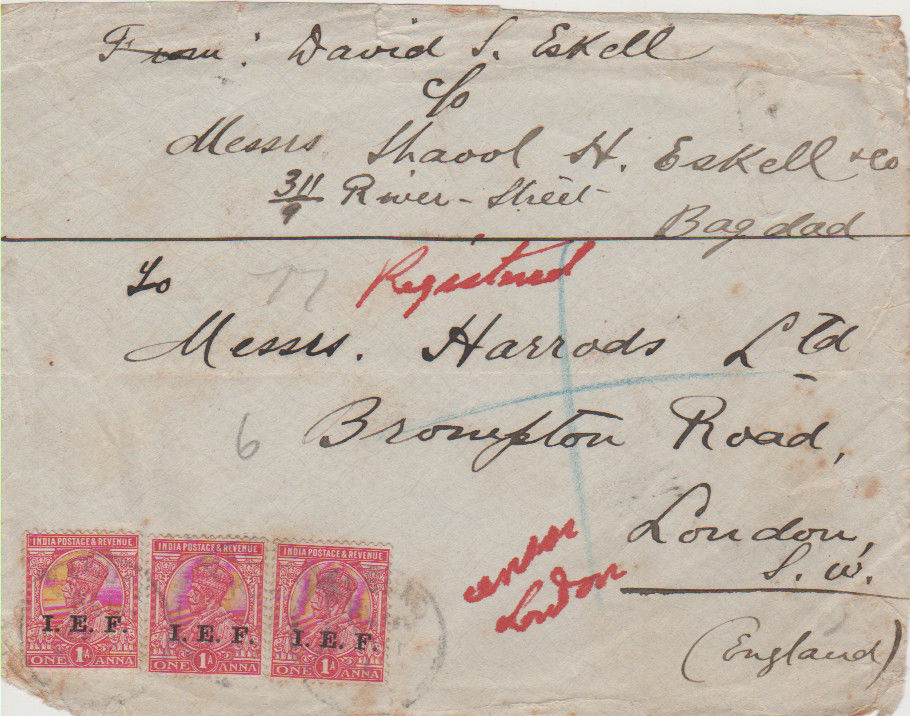 From: David S. Eskell
c/o
Messrs Shaool H. Eskell & Co
311/9 River-Street
Bagdad
To
77
Registered
Messrs. Harrods Ltd
6
Brompton Road,
London,
S. W.
censor
London
(England)
INDIA POSTAGE & REVENUE
I. E. F.
ONE 1A ANNA
INDIA POSTAGE & REVENUE
I. E. F.
ONE 1A ANNA
INDIA POSTAGE & REVENUE
I. E. F.
ONE 1A ANNA